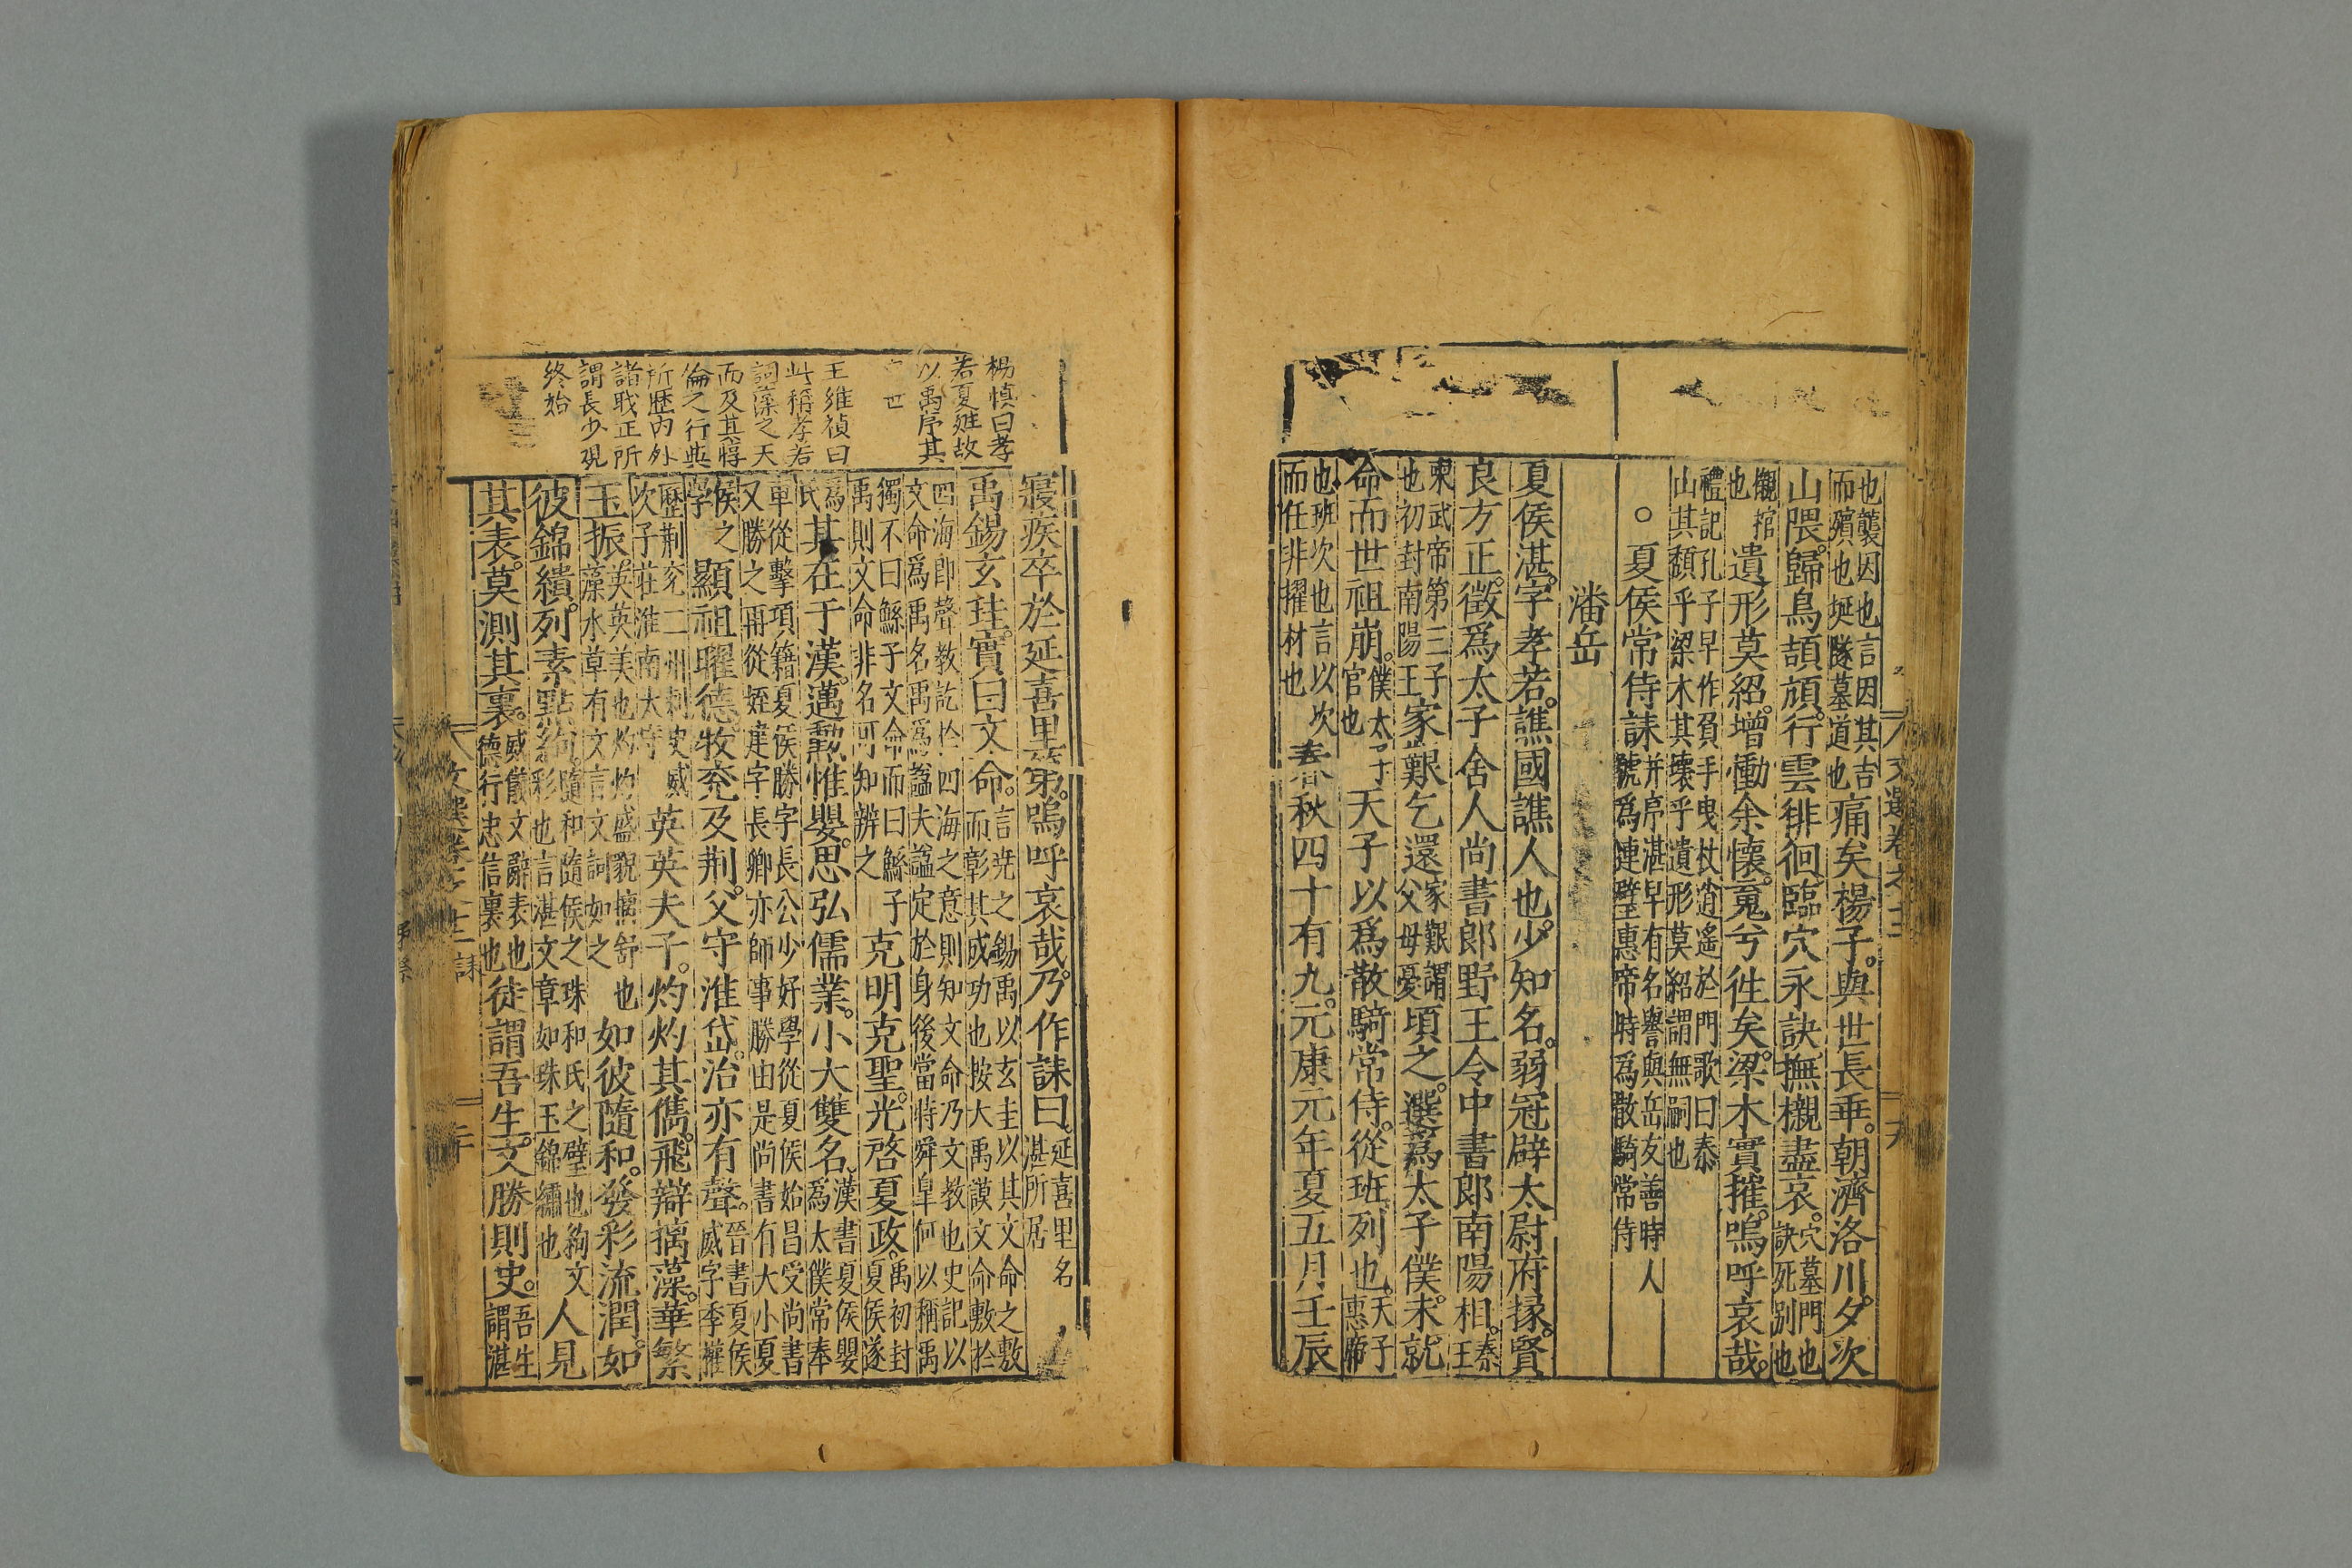 也襲因也言因其吉
而殯也埏隧墓道也
痛矣楊子。與世長乖。朝濟洛川。夕次
山隈。歸鳥頡頏。行雲徘徊。臨穴永訣。撫櫬盡哀。
穴墓門也
訣死别也
櫬棺
也
遺形莫紹。增慟余懷。䰟兮徃矣。梁木實摧。嗚呼哀哉。
禮記孔子早作負手曳杖逍遙於門歌曰泰
山其頹乎梁木其壞乎遺形莫紹謂無嗣也
○夏侯常侍誄
并序湛早有名譽與岳友善時人
號爲連璧惠帝時爲散騎常侍
潘岳
夏侯湛。字孝若。譙國譙人也。少知名。弱冠辟太尉府掾。賢
良方正。徵爲太子舍人尚書郎野王令中書郎南陽相。
秦王
柬武帝第三子
也初封南陽王
家艱乞還
家艱謂
父母憂
頃之。選爲太子僕。未就
命而世祖崩。
僕太子
官也
天子以爲散騎常侍。從班列也。
天子
惠帝
也班次也言以次
而任非擢材也
春秋四十有九。元康元年夏五月壬辰
文選卷之十三
十九
寢疾卒於延喜里第。嗚呼哀哉。乃作誄曰。
延喜里名
湛所居
禹錫玄珪。實曰文命。
言尭之錫禹以玄圭以其文命之敷
而彰其成功也按大禹謨文命敷扵
四海即聲教訖扵四海之意則知文命乃文教也史記以
文命爲禹名禹爲謚夫謚定於身後當時舜皐何以稱禹
獨不曰鯀子文命而曰鯀子
禹則文命非名可知辨之
克明克聖。光啓夏政。
禹初封
夏侯遂
爲
氏
其在于漢。邁勲惟嬰。思弘儒業。小大雙名。
漢書夏侯嬰
爲太僕常奉
車從擊項籍夏侯勝字長公少好學從夏侯始昌受尚書
又勝之再從姪建字長卿亦師事勝由是尚書有大小夏
侯之
學
顯祖曜德。牧兖及荆。父守淮岱。治亦有聲。
晉書夏侯
威字季權
歷荆兖二州刺史威
次子莊淮南太守
英英夫子。灼灼其儁。飛辯摛藻。華繁
玉振。
英英美也灼灼盛貌摛舒也
藻水草有文言文詞如之
如彼隨和。發彩流潤。如
彼錦繢。列素點絢。
隨和隨侯之珠和氏之璧也絢文
彩也言湛文章如珠玉錦繡也
人見
其表。莫測其裏。
威儀文辭表也
德行忠信裏也
徒謂吾生。文勝則史。
吾生
謂湛
楊慎曰孝
若夏姓故
以禹序其
世
王維禎曰
此稱孝若
詞藻之天
而及其惇
倫之行典
所歷内外
諸職正所
謂長少覌
終始
誄
二十